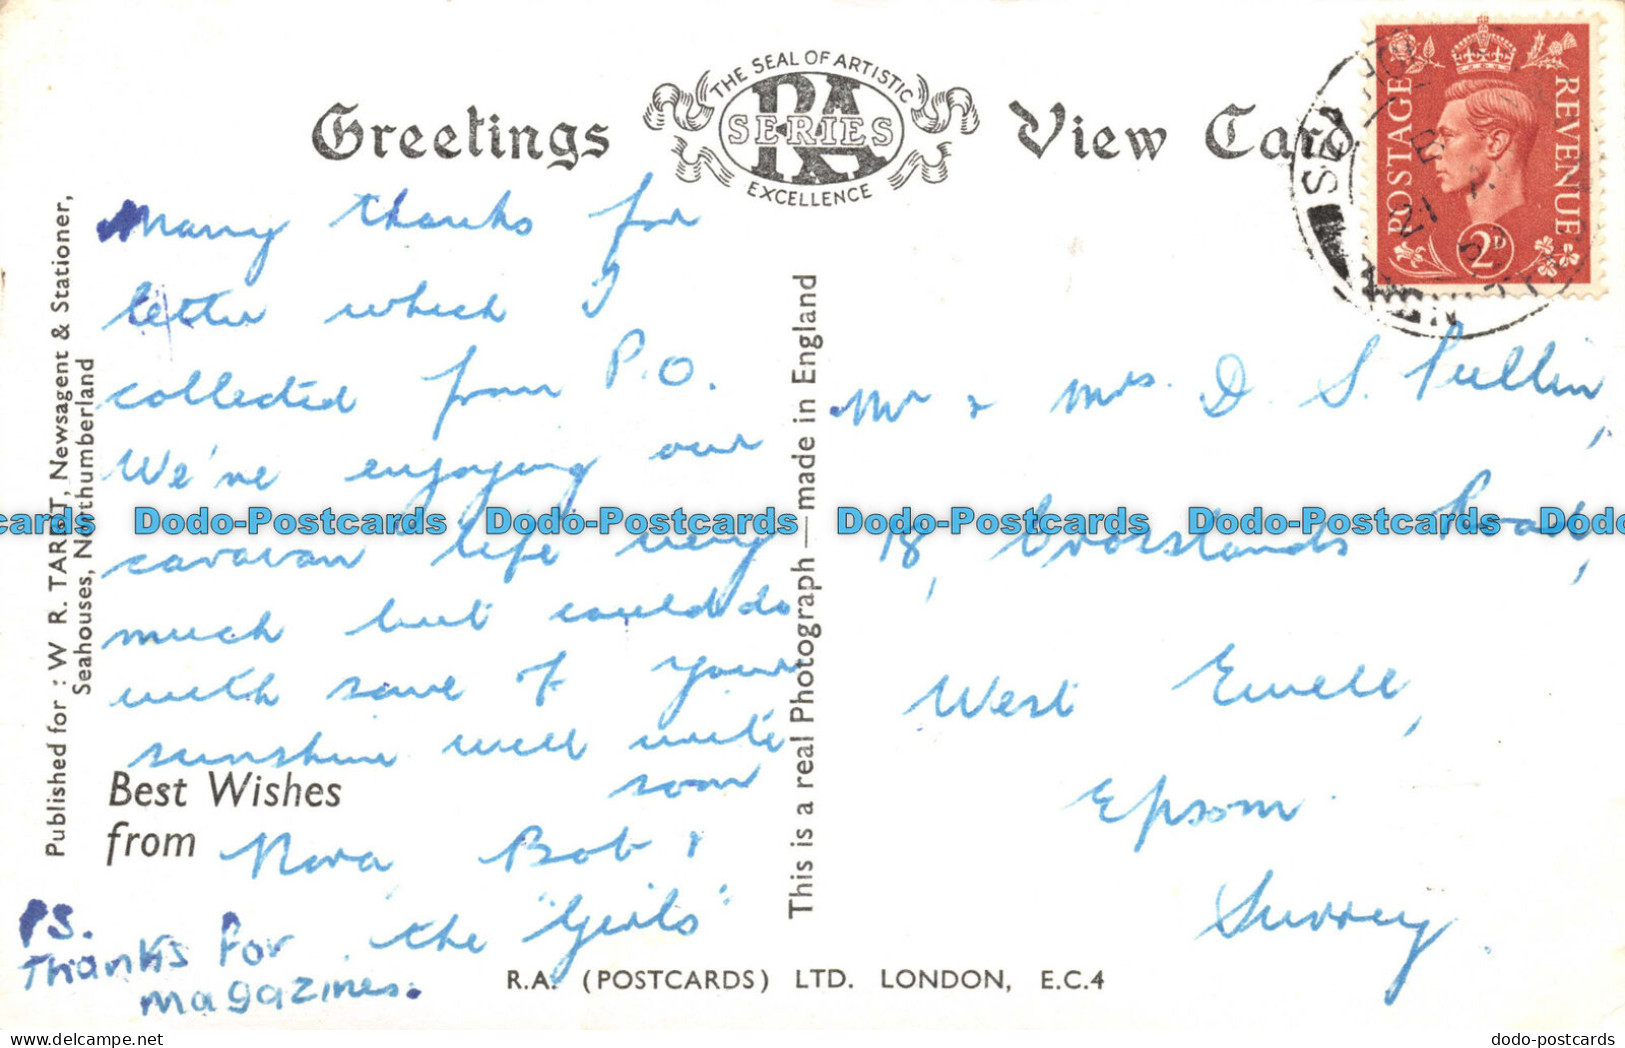 Greetings
THE SEAL OF ARTISTIC
RA
SERIES
EXCELLENCE
View Card
POSTAGE REVENUE
2D
SEAHOUSES
21
Published for : W. R. TARBIT, Newsagent & Stationer,
Seahouses, Northumberland
Many thanks for
letter which I
collected from P.O.
We're enjoying our
caravan life very
much but could do
with some of your
sunshine will write
soon
Best Wishes
from Nora Bob &
the "Girls"
PS.
Thanks for
magazines.
This is a real Photograph — made in England
Mr & Mrs. D. S. Pullin,
18, Crosslands Road,
West Ewell,
Epsom
Surrey
R.A. (POSTCARDS) LTD. LONDON, E.C.4
cards Dodo-Postcards Dodo-Postcards Dodo-Postcards Dodo-Postcards Dodo
dodo-postcards